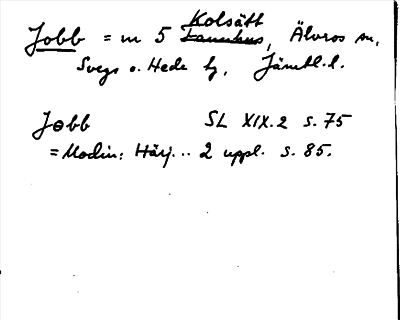 Kolsätt
Jobb = m 5 Lannhus, Älvros sn,
Svegs o. Hede tg, Jämtl. l.
Jɵbb SL XIX.2 s. 75
= Modin: Härj... 2 uppl. s. 85.